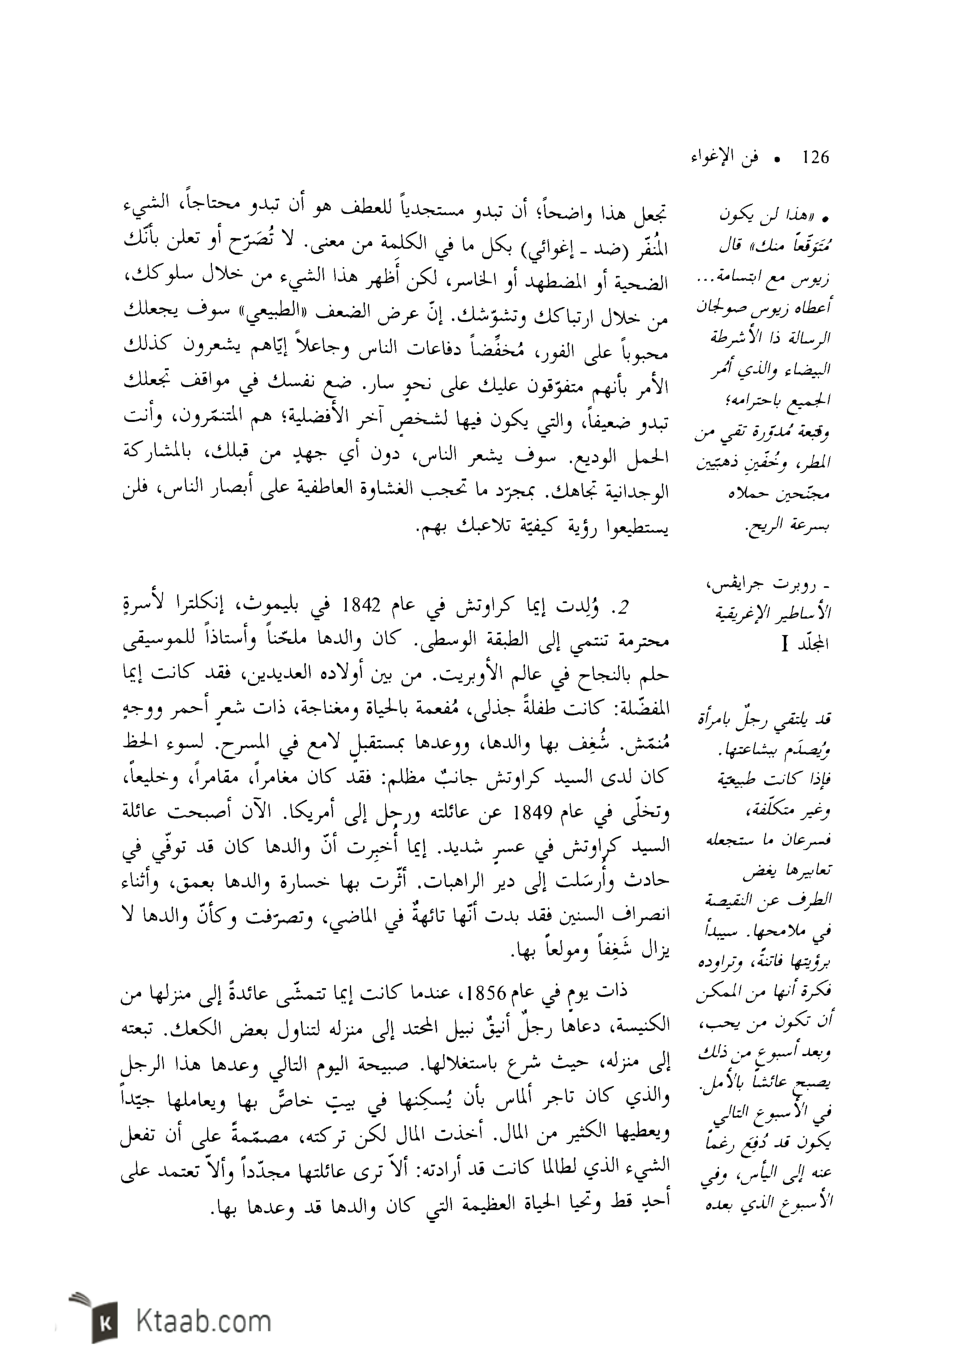 126 • فن الإغواء
تجعل هذا واضحاً؛ أن تبدو مستجدياً للعطف هو أن تبدو محتاجاً، الشيء
المُنفّر (ضد ـ إغوائي) بكل ما في الكلمة من معنى. لا تُصَرّح أو تعلن بأنّك
الضحية أو المضطهد أو الخاسر، لكن أَظهر هذا الشيء من خلال سلوكك،
من خلال ارتباكك وتشوّشك. إنّ عرض الضعف «الطبيعي» سوف يجعلك
محبوباً على الفور، مُخفِّضاً دفاعات الناس وجاعلاً إيّاهم يشعرون كذلك
الأمر بأنهم متفوّقون عليك على نحوٍ سار. ضع نفسك في مواقف تجعلك
تبدو ضعيفاً، والتي يكون فيها لشخصٍ آخر الأفضلية؛ هم المتنمّرون، وأنت
الحمل الوديع. سوف يشعر الناس، دون أي جهدٍ من قبلك، بالمشاركة
الوجدانية تجاهك. بمجرّد ما تحجب الغشاوة العاطفية على أبصار الناس، فلن
يستطيعوا رؤية كيفيّة تلاعبك بهم.
2. وُلِدت إيما كراوتش في عام 1842 في بليموث، إنكلترا لأسرةٍ
محترمة تنتمي إلى الطبقة الوسطى. كان والدها ملحّناً وأستاذاً للموسيقى
حلم بالنجاح في عالم الأوبريت. من بين أولاده العديدين، فقد كانت إيما
المفضّلة: كانت طفلةً جذلى، مُفعمة بالحياة ومغناجة، ذات شعرٍ أحمر ووجهٍ
مُنمّش. شُغِف بها والدها، ووعدها بمستقبلٍ لامع في المسرح. لسوء الحظ
كان لدى السيد كراوتش جانبٌ مظلم: فقد كان مغامراً، مقامراً، وخليعاً،
وتخلّى في عام 1849 عن عائلته ورحل إلى أمريكا. الآن أصبحت عائلة
السيد كراوتش في عسرٍ شديد. إيما أُخبِرت أنّ والدها كان قد توفّي في
حادث وأُرسَلت إلى دير الراهبات. أثّرت بها خسارة والدها بعمق، وأثناء
انصراف السنين فقد بدت أنّها تائهةٌ في الماضي، وتصرّفت وكأنّ والدها لا
يزال شَغِفاً ومولعاً بها.
ذات يومٍ في عام 1856، عندما كانت إيما تتمشّى عائدةً إلى منزلها من
الكنيسة، دعاها رجلٌ أنيقٌ نبيل المحتد إلى منزله لتناول بعض الكعك. تبعته
إلى منزله، حيث شرع باستغلالها. صبيحة اليوم التالي وعدها هذا الرجل
والذي كان تاجر ألماس بأن يُسكِنها في بيتٍ خاصٍّ بها ويعاملها جيّداً
ويعطيها الكثير من المال. أخذت المال لكن تركته، مصمّمةً على أن تفعل
الشيء الذي لطالما كانت قد أرادته: ألاّ ترى عائلتها مجدّداً وألاّ تعتمد على
أحدٍ قط وتحيا الحياة العظيمة التي كان والدها قد وعدها بها.
• «هذا لن يكون
مُتَوَقّعاً منك» قال
زيوس مع ابتسامة...
أعطاه زيوس صولجان
الرسالة ذا الأشرطة
البيضاء والذي أُمُر
الجميع باحترامه؛
وقبعة مُدوّرة تقي من
المطر، وخُفّينِ ذهبّيين
مجنّحين حملاه
بسرعة الريح.
ـ روبرت جرايڤس،
الأساطير الإغريقية
المجلّد I
قد يلتقي رجلٌ بامرأة
ويُصدَم ببشاعتها.
فإذا كانت طبيعيّة
وغير متكلّفة،
فسرعان ما ستجعله
تعابيرها يغض
الطرف عن النقيصة
في ملامحها. سيبدأ
برؤيتها فاتنةً، وتراوده
فكرة أنها من الممكن
أن تكون من يحب،
وبعد أسبوعٍ من ذلك
يصبح عائشاً بالأمل.
في الأسبوع التالي
يكون قد دُفِعَ رغماً
عنه إلى اليأس، وفي
الأسبوع الذي بعده
Ktaab.com